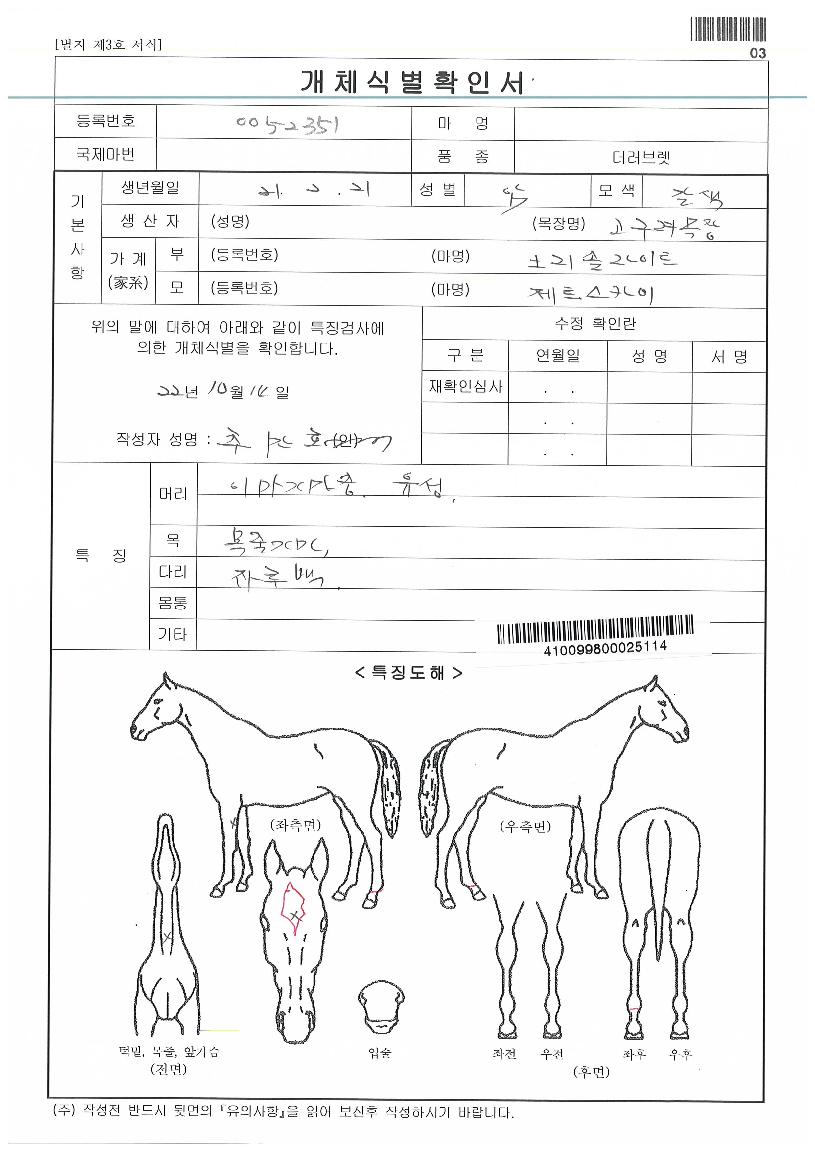 [별지 제3호 서식]
03
개체식별확인서
등록번호 0052351 마 명
국제마번 품 종 더러브렛
기본사항
생년월일 21. 2. 21 성별 암 모색 갈색
생 산 자 (성명) (목장명) 고구려목장
가계 (家系) 부 (등록번호) (마명)
모 (등록번호) (마명) 제트스카이
위의 말에 대하여 아래와 같이 특징검사에
의한 개체식별을 확인합니다.
22년 10월 14일
작성자 성명 :
수정 확인란
구 분 연월일 성 명 서 명
재확인심사 . .
. .
. .
특 징
머리 이마가마중. 유성.
목 목줄가마.
다리 좌후백.
몸통
기타
410099800025114
<특징도해>
(좌측면) (우측면)
턱밑, 목줄, 앞가슴
(전면)
입술
좌전 우전 좌후 우후
(후면)
(주) 작성전 반드시 뒷면의 『유의사항』을 읽어 보신후 작성하시기 바랍니다.